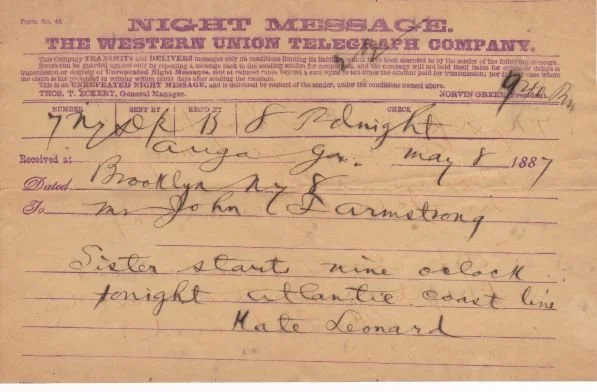 Form No. 44.
NIGHT MESSAGE.
THE WESTERN UNION TELEGRAPH COMPANY.
This Company TRANSMITS and DELIVERS messages only on conditions limiting its liability, which have been assented to by the sender of the following message.
Errors can be guarded against only by repeating a message back to the sending station for comparison, and the company will not hold itself liable for errors or delays in
transmission or delivery of Unrepeated Night Messages, sent at reduced rates, beyond a sum equal to ten times the amount paid for transmission; nor in any case where
the claim is not presented in writing within thirty days after sending the message.
This is an UNREPEATED NIGHT MESSAGE, and is delivered by request of the sender, under the conditions named above.
THOS. T. ECKERT, General Manager. NORVIN GREEN, President.
NUMBER SENT BY REC'D BY CHECK
7 Ny B 8 Pd night
Received at Auga Ga. May 8 1887
Dated Brooklyn Ny 8
To Mr John Armstrong
Sister start nine oclock
tonight atlantic coast line
Kate Leonard